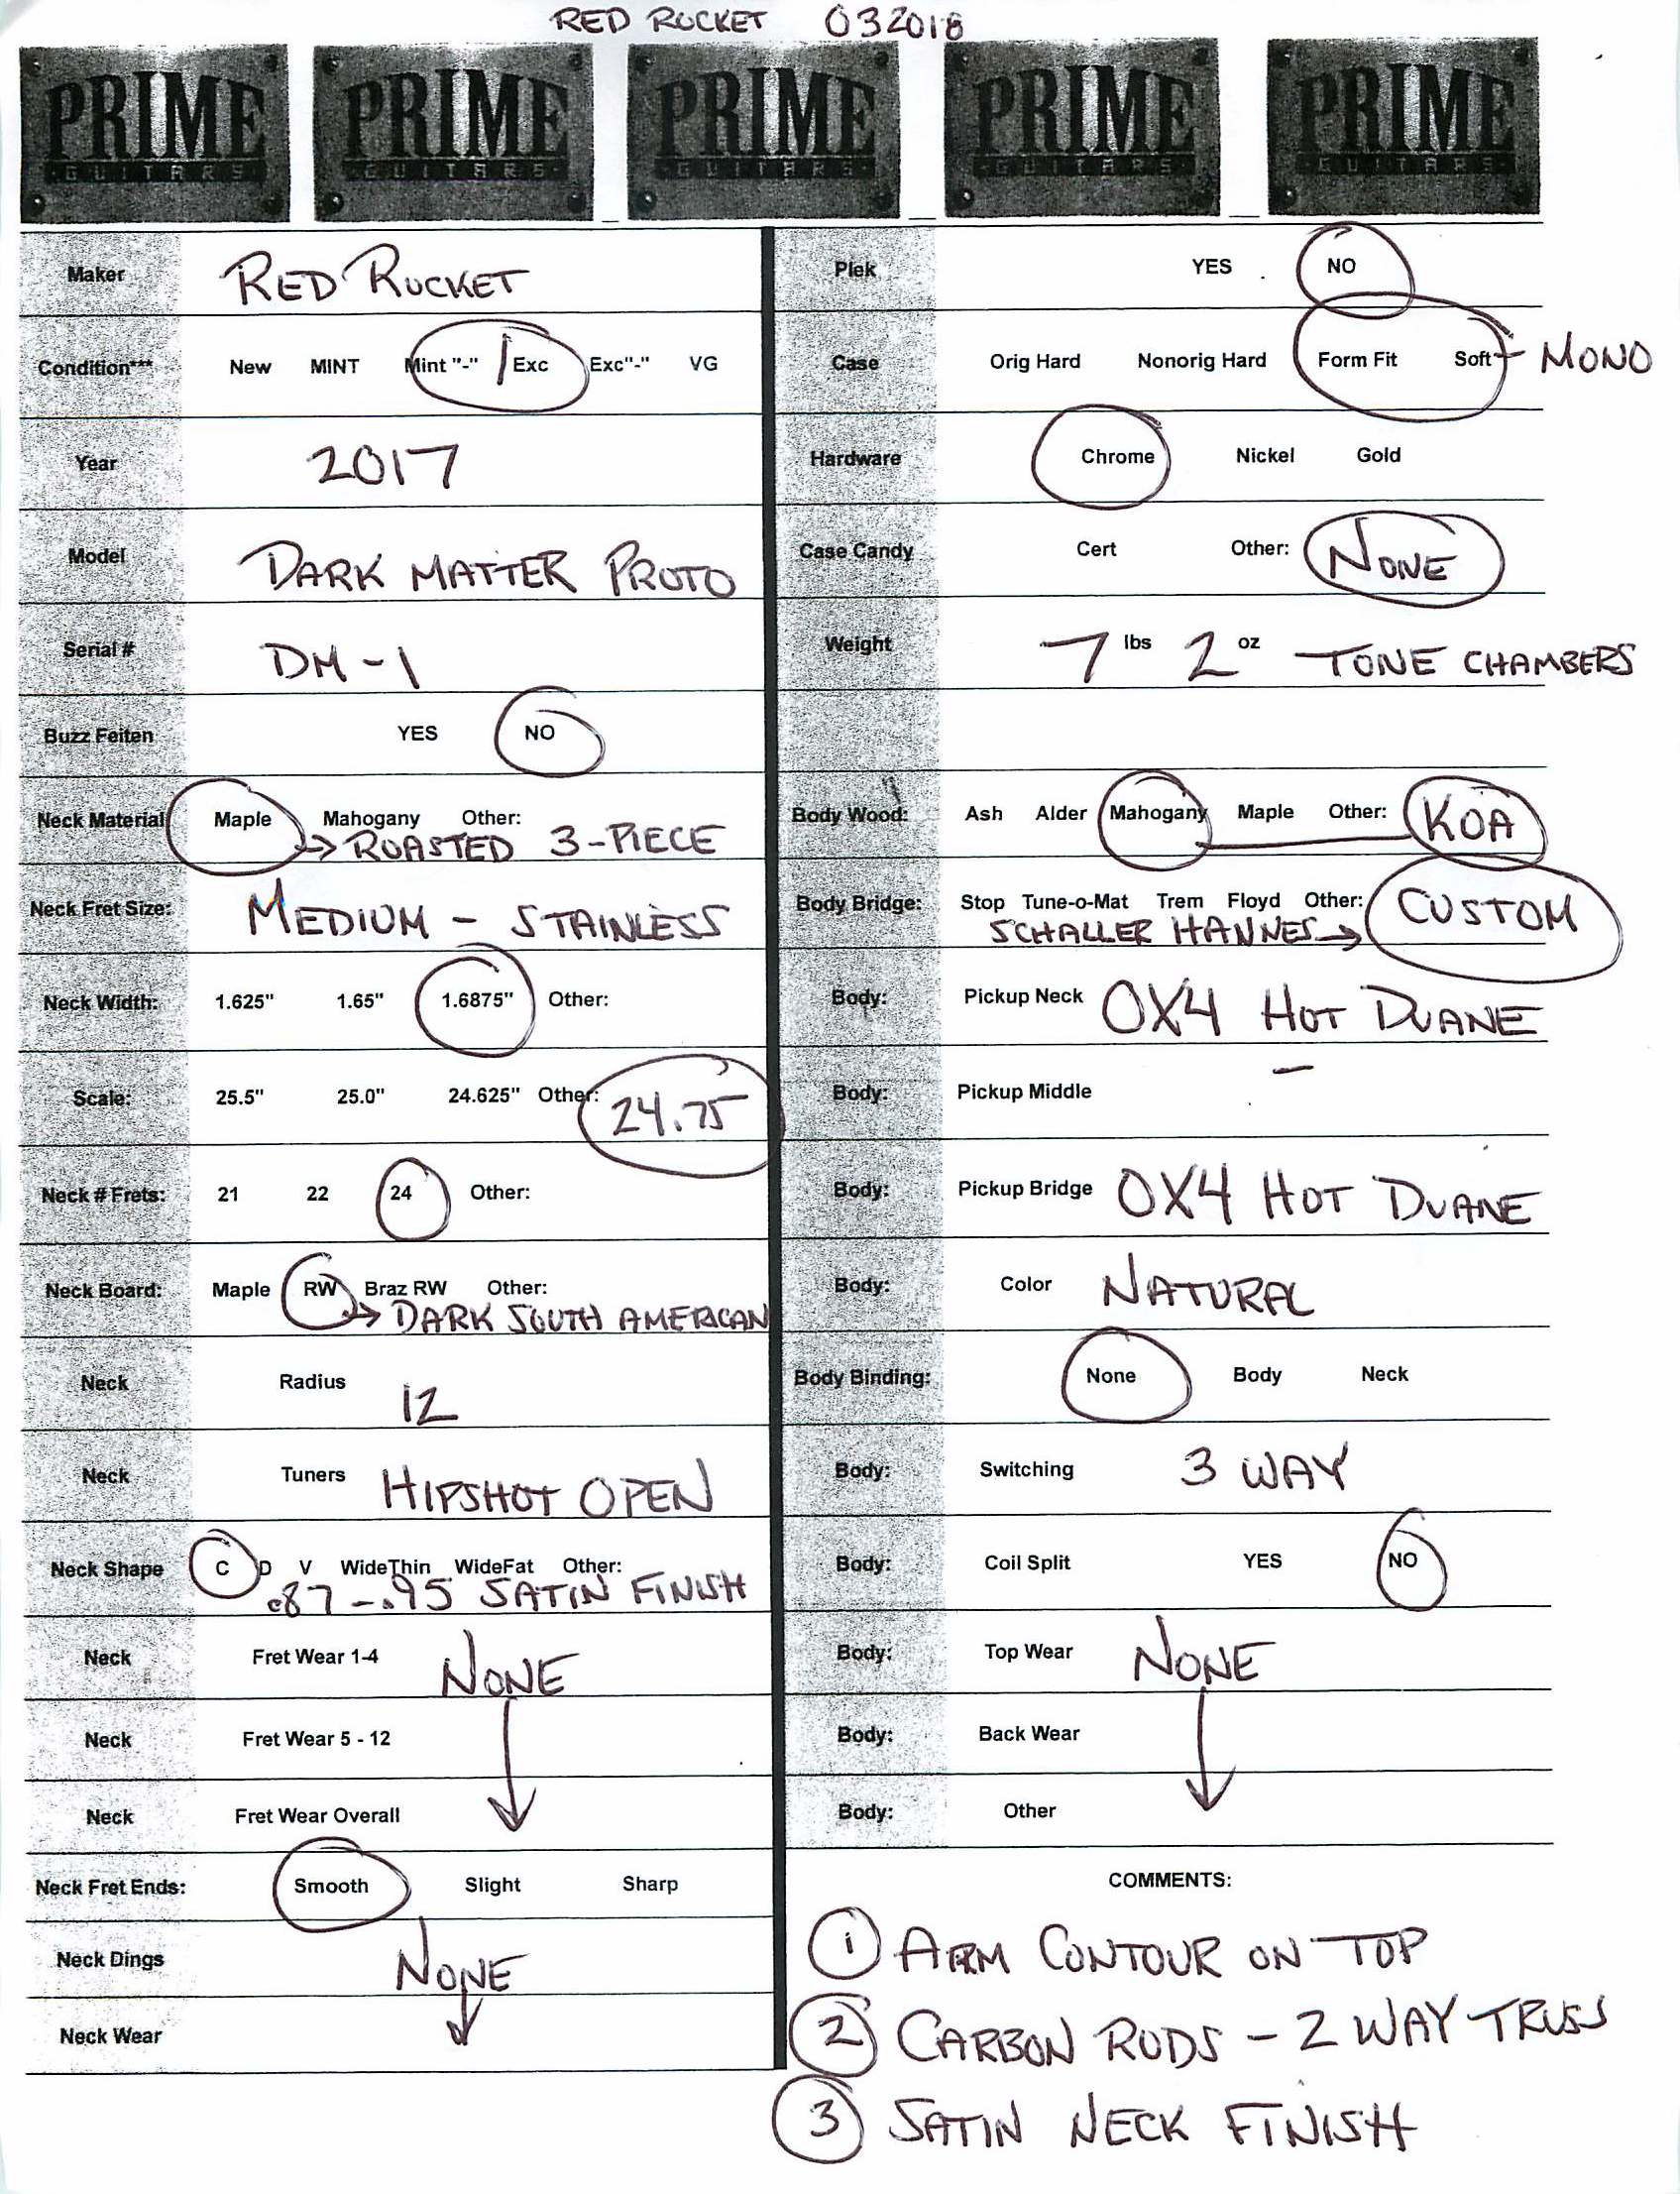 RED ROCKET 032018
PRIME PRIME PRIME PRIME PRIME
GUITARS GUITARS GUITARS GUITARS GUITARS
Maker RED ROCKET
Condition*** New MINT Mint "-" / Exc Exc"-" VG
Year 2017
Model DARK MATTER PROTO
Serial # DM-1
Buzz Feiten YES NO
Neck Material Maple Mahogany Other:
→ ROASTED 3-PIECE
Neck Fret Size: MEDIUM - STAINLESS
Neck Width: 1.625" 1.65" 1.6875" Other:
Scale: 25.5" 25.0" 24.625" Other: 24.75
Neck # Frets: 21 22 24 Other:
Neck Board: Maple RW Braz RW Other:
→ DARK SOUTH AMERICAN
Neck Radius 12
Neck Tuners HIPSHOT OPEN
Neck Shape C D V WideThin WideFat Other:
.87 - .95 SATIN FINISH
Neck Fret Wear 1-4 NONE
Neck Fret Wear 5 - 12
Neck Fret Wear Overall
Neck Fret Ends: Smooth Slight Sharp
Neck Dings NONE
Neck Wear
Plek YES NO
Case Orig Hard Nonorig Hard Form Fit Soft - MONO
Hardware Chrome Nickel Gold
Case Candy Cert Other: NONE
Weight 7 lbs 2 oz TONE CHAMBERS
Body Wood: Ash Alder Mahogany Maple Other: KOA
Body Bridge: Stop Tune-o-Mat Trem Floyd Other: CUSTOM
SCHALLER HANNES →
Body: Pickup Neck OX4 HOT DUANE
Body: Pickup Middle -
Body: Pickup Bridge OX4 HOT DUANE
Body: Color NATURAL
Body Binding: None Body Neck
Body: Switching 3 WAY
Body: Coil Split YES NO
Body: Top Wear NONE
Body: Back Wear
Body: Other
COMMENTS:
1 ARM CONTOUR ON TOP
2 CARBON RODS - 2 WAY TRUSS
3 SATIN NECK FINISH